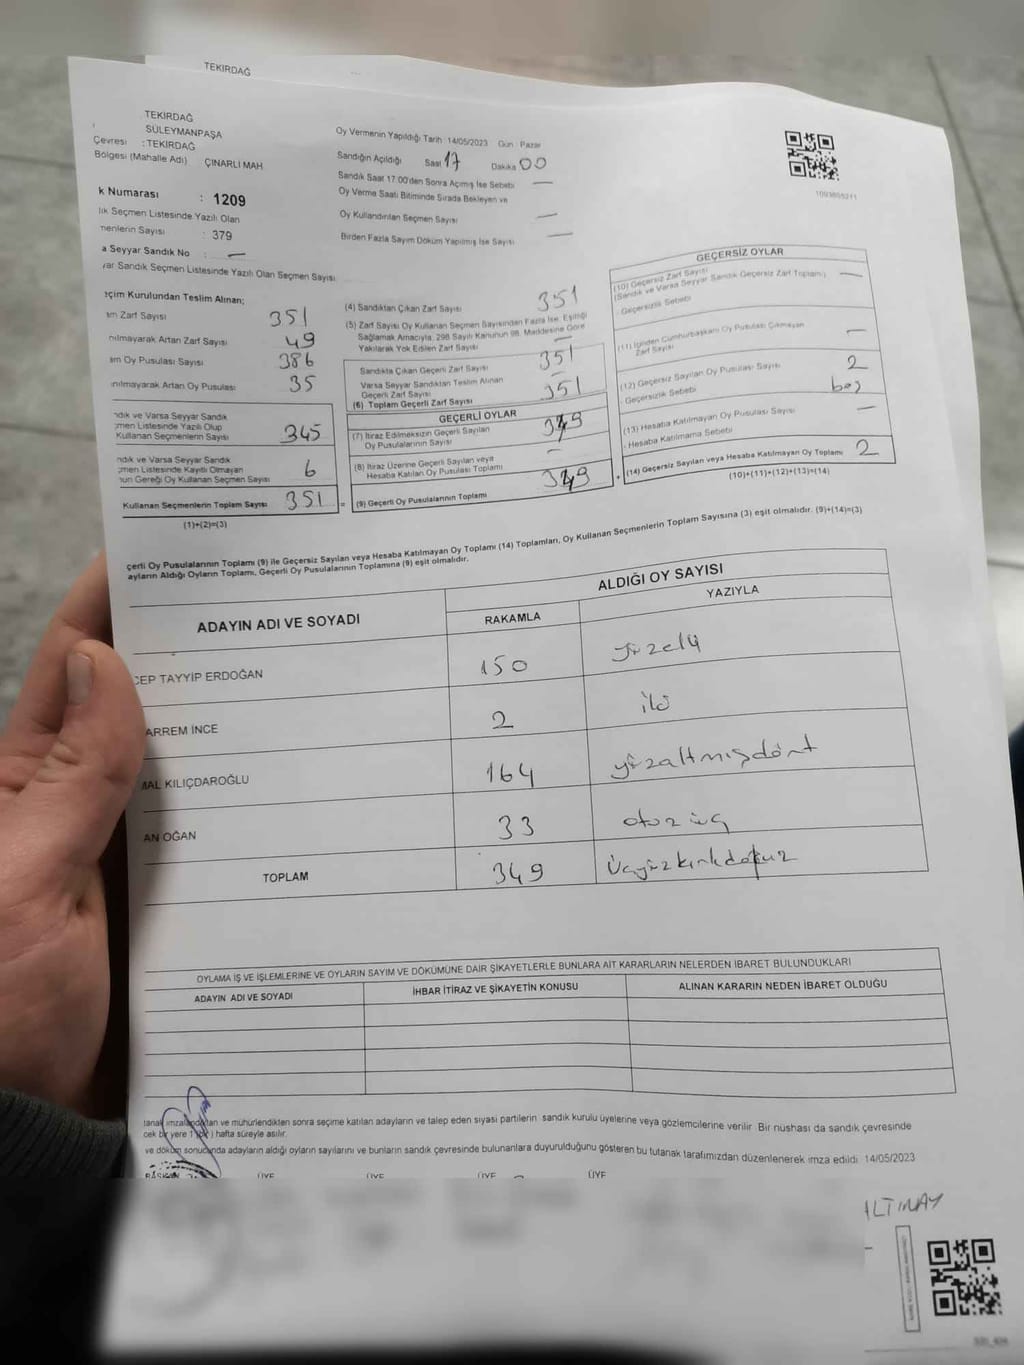 TEKİRDAĞ
TEKİRDAĞ
SÜLEYMANPAŞA
Çevresi : TEKİRDAĞ
Bölgesi (Mahalle Adı) ÇINARLI MAH
k Numarası : 1209
lik Seçmen Listesinde Yazılı Olan
menlerin Sayısı : 379
a Seyyar Sandık No : —
yar Sandık Seçmen Listesinde Yazılı Olan Seçmen Sayısı
Oy Vermenin Yapıldığı Tarih 14/05/2023 Gün : Pazar
Sandığın Açıldığı Saat 17 Dakika 00
Sandık Saat 17:00'den Sonra Açmış İse Sebebi —
Oy Verme Saati Bitiminde Sırada Bekleyen ve
Oy Kullandırılan Seçmen Sayısı —
Birden Fazla Sayım Döküm Yapılmış İse Sayısı —
1093605211
eçim Kurulundan Teslim Alınan;
ım Zarf Sayısı 351
nılmayarak Artan Zarf Sayısı 49
ım Oy Pusulası Sayısı 386
ınılmayarak Artan Oy Pusulası 35
ndık ve Varsa Seyyar Sandık
çmen Listesinde Yazılı Olup
Kullanan Seçmenlerin Sayısı 345
ndık ve Varsa Seyyar Sandık
çmen Listesinde Kayıtlı Olmayan
nun Gereği Oy Kullanan Seçmen Sayısı 6
Kullanan Seçmenlerin Toplam Sayısı 351 =
(1)+(2)=(3)
(4) Sandıktan Çıkan Zarf Sayısı 351
(5) Zarf Sayısı Oy Kullanan Seçmen Sayısından Fazla İse, Eşitliği
Sağlamak Amacıyla, 298 Sayılı Kanunun 98. Maddesine Göre
Yakılarak Yok Edilen Zarf Sayısı —
Sandıkta Çıkan Geçerli Zarf Sayısı 351
Varsa Seyyar Sandıktan Teslim Alınan
Geçerli Zarf Sayısı —
(6) Toplam Geçerli Zarf Sayısı 351
GEÇERLİ OYLAR
(7) İtiraz Edilmeksizin Geçerli Sayılan
Oy Pusulalarının Sayısı 349
(8) İtiraz Üzerine Geçerli Sayılan veya
Hesaba Katılan Oy Pusulası Toplamı —
(9) Geçerli Oy Pusulalarının Toplamı 349 +
GEÇERSİZ OYLAR
(10) Geçersiz Zarf Sayısı
(Sandık ve Varsa Seyyar Sandık Geçersiz Zarf Toplamı) —
- Geçersizlik Sebebi
(11) İçinden Cumhurbaşkanı Oy Pusulası Çıkmayan
Zarf Sayısı —
(12) Geçersiz Sayılan Oy Pusulası Sayısı 2
- Geçersizlik Sebebi boş
(13) Hesaba Katılmayan Oy Pusulası Sayısı —
- Hesaba Katılmama Sebebi
(14) Geçersiz Sayılan veya Hesaba Katılmayan Oy Toplamı 2
(10)+(11)+(12)+(13)=(14)
çerli Oy Pusulalarının Toplamı (9) ile Geçersiz Sayılan veya Hesaba Katılmayan Oy Toplamı (14) Toplamları, Oy Kullanan Seçmenlerin Toplam Sayısına (3) eşit olmalıdır. (9)+(14)=(3)
ayların Aldığı Oyların Toplamı, Geçerli Oy Pusulalarının Toplamına (9) eşit olmalıdır.
ADAYIN ADI VE SOYADI
ALDIĞI OY SAYISI
RAKAMLA YAZIYLA
CEP TAYYİP ERDOĞAN 150 yüzelli
ARREM İNCE 2 iki
MAL KILIÇDAROĞLU 164 yüzaltmışdört
AN OĞAN 33 otuz üç
TOPLAM 349 üçyüzkırkdokuz
OYLAMA İŞ VE İŞLEMLERİNE VE OYLARIN SAYIM VE DÖKÜMÜNE DAİR ŞİKAYETLERLE BUNLARA AİT KARARLARIN NELERDEN İBARET BULUNDUKLARI
ADAYIN ADI VE SOYADI İHBAR İTİRAZ VE ŞİKAYETİN KONUSU ALINAN KARARIN NEDEN İBARET OLDUĞU
tanak imzalandıktan ve mühürlendikten sonra seçime katılan adayların ve talep eden siyasi partilerin sandık kurulu üyelerine veya gözlemcilerine verilir Bir nüshası da sandık çevresinde
cek bir yere 1 (bir) hafta süreyle asılır.
ve döküm sonucunda adayların aldığı oyların sayılarını ve bunların sandık çevresinde bulunanlara duyurulduğunu gösteren bu tutanak tarafımızdan düzenlenerek imza edildi 14/05/2023
BAŞKAN ÜYE ÜYE ÜYE ÜYE
ALTINAY